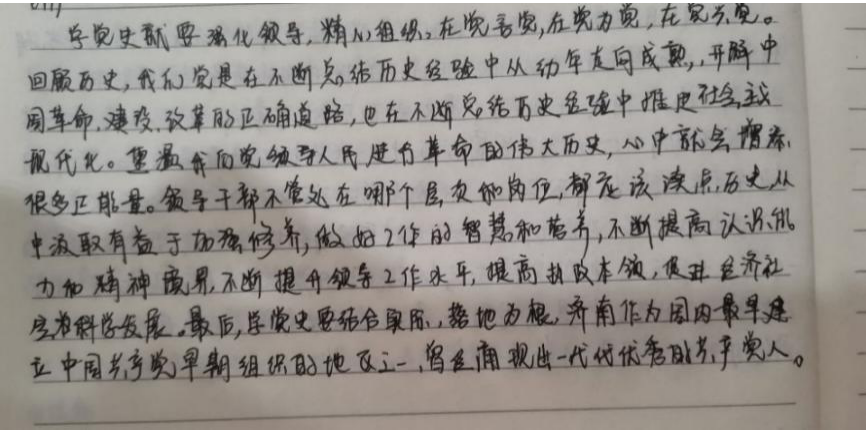 学党史就要强化领导,精心组织。在党言党,在党为党,在党兴党。
回顾历史,我们党是在不断总结历史经验中从幼年走向成熟,开辟中
国革命、建设、改革的正确道路,也在不断总结历史经验中推进社会主义
现代化。重温我们党领导人民进行革命的伟大历史,心中就会增添
很多正能量。领导干部不管处在哪个层次和岗位,都应该读点历史从
中汲取有益于加强修养,做好工作的智慧和营养,不断提高认识能
力和精神境界,不断提升领导工作水平,提高执政本领,促进经济社
会科学发展。最后,学党史要结合实际,落地为根,济南作为国内最早建
立中国共产党早期组织的地区之一,曾经涌现出一代代优秀的共产党人。